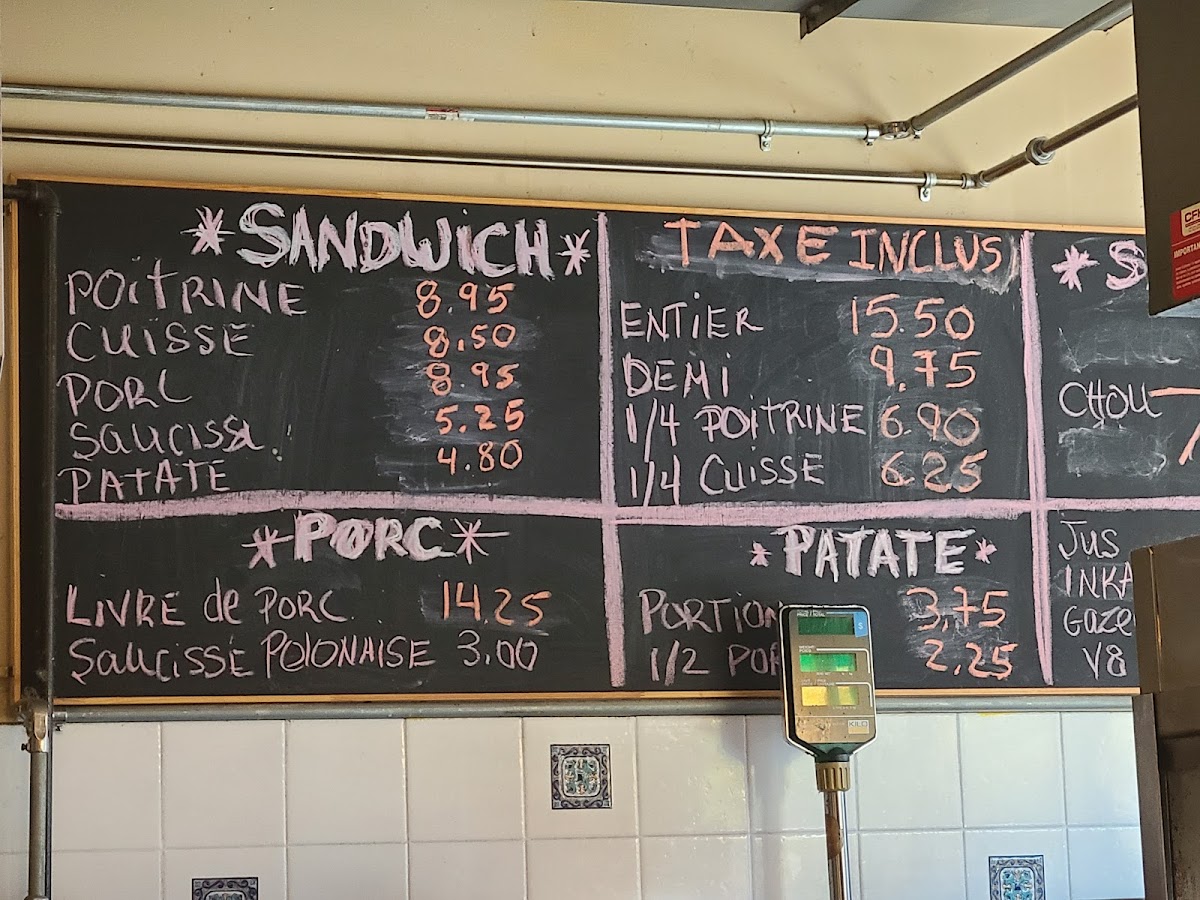 *SANDWiCH*
POiTRINE 8.95
CUiSSE 8.50
PORC 8.95
SAUCiSSE 5.25
PATATE 4.80
TAXE INCLUS
ENTiER 15.50
DEMi 9.75
1/4 POiTRINE 6.90
1/4 CUiSSE 6.25
*S
CHOU
*PORC*
LiVRE de PORC 14.25
SAUCiSSE POLONAiSE 3.00
*PATATE*
PORTiON 3.75
1/2 POR 2.25
JUS
INKA
GAZE
V8
KILO